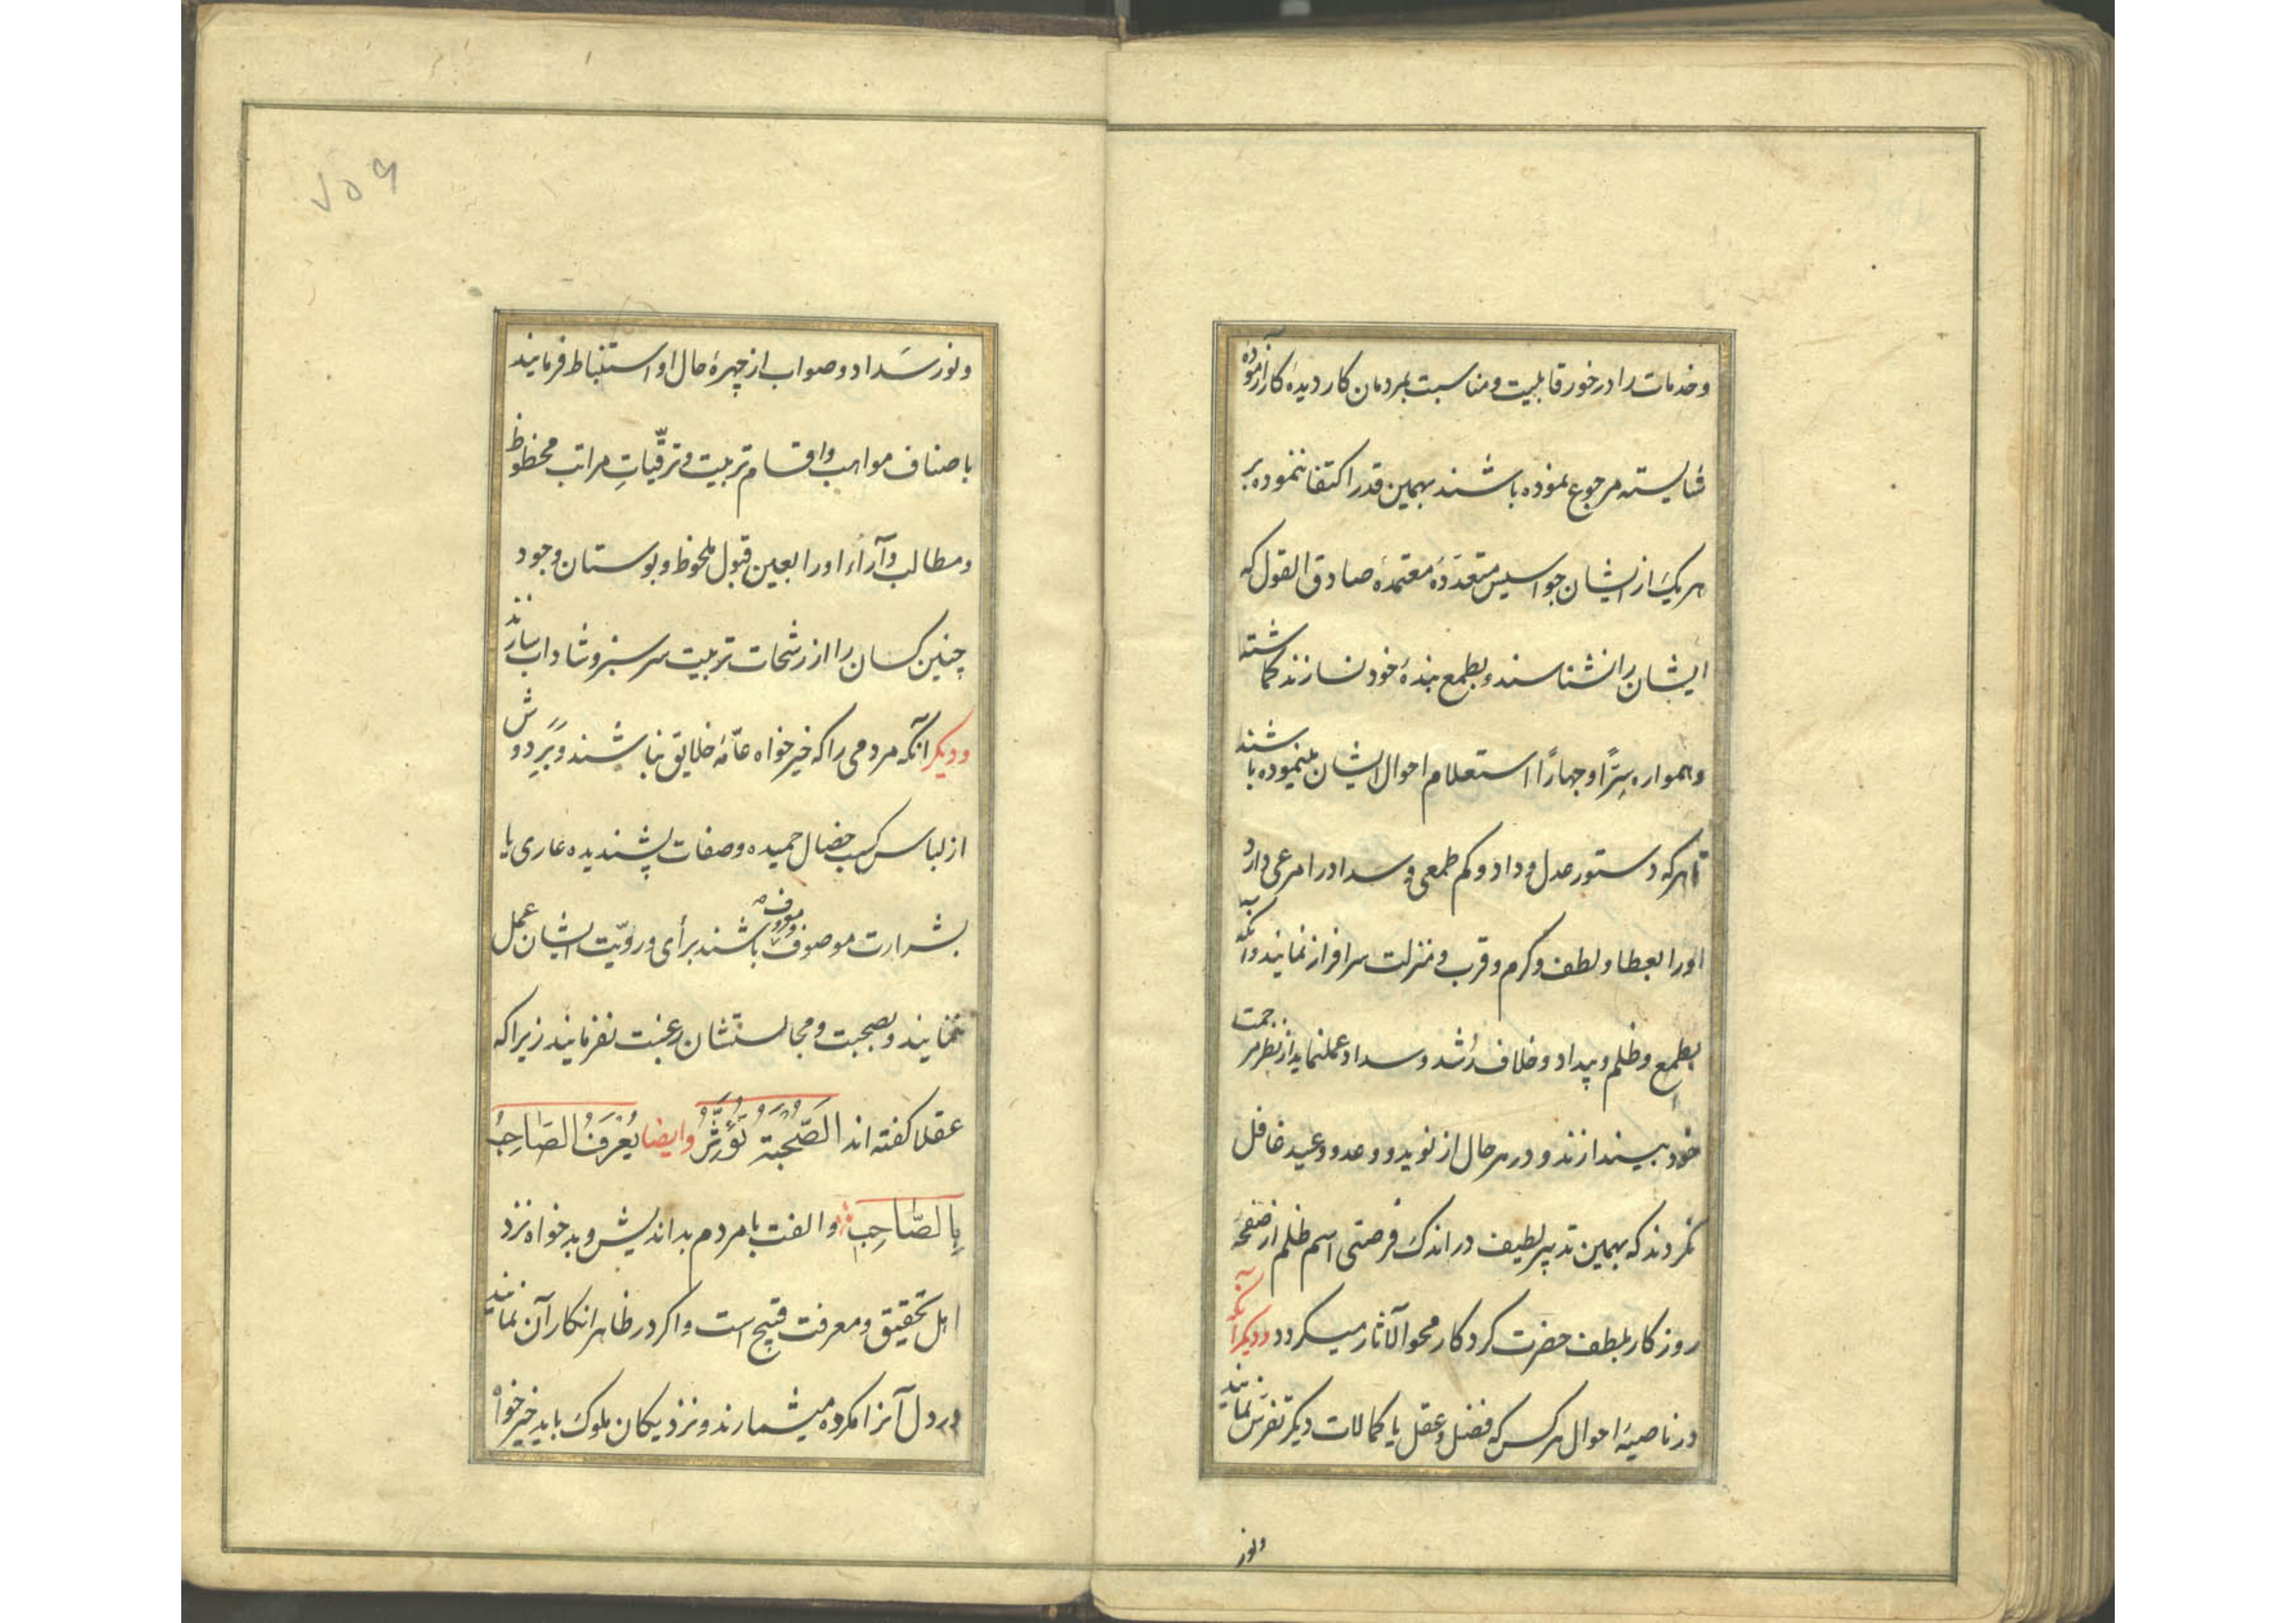 وخدمات را درخور قابلیت ومناسبت بمردمان کار دیدهٔ کارآزموده
شایسته مرجوع نموده باشند بهمین قدر اکتفا ننموده بر
هریک از ایشان جواسیس متعدّدهٔ معتمدهٔ صادق القول که
ایشان را نشناسند وبطمع بندهٔ خود نسازند کماشته
وهمواره سِرّاً وجهاراً استعلام احوال ایشان مینموده باشند
تا هرکه دستور عدل وداد وکم طمعی وسداد را مرعی دارد
اورا بعطا ولطف وکرم وقرب ومنزلت سرافراز نمایند وآنکه
بطمع وظلم وبیداد وخلاف رُشد وسداد عملنماید از نظر مرحمت
خود بیندازند ودر هرحال از نوید ووعد ووعید غافل
نکردند که بهمین تدبیر لطیف در اندک فرصتی اسم ظلم از صفحهٔ
روزکار بلطف حضرت کردکار محو الآثار میکردد ودیکر آنکه
در ناصیهٔ احوال هرکس که فضل وعقل یا کمالات دیکر تفرّس نمایند
ونور
ونور سَداد وصواب از چهرهٔ حال او استنباط فرمایند
باصناف مواهب واقسام تربیت وترقّیاتِ مراتب محظوظ
ومطالب وآراء اورا بعین قبول ملحوظ وبوستان وجود
چنین کسان را از رشحات تربیت سرسبز وشاداب سازند
ودیکر آنکه مردمی را که خیرخواه عامّهٔ خلایق نباشند وبَرِ دوش
از لباس کسب خصال حمیده وصفات پسندیده عاری یا
بشرارت موصوف ومعروف باشند برأی ورویّت ایشان عمل
ننمایند وبصحبت ومجالستشان رغبت نفرمایند زیرا که
عقلا کفته اند الصُّحْبَةُ تُؤَثِّرُ وایضا یُعْرَفُ الصّاحِبُ
بِالصّاحِبِ والفت با مردم بداندیش وبدخواه نزد
اهل تحقیق ومعرفت قبیح است واکر در ظاهر انکار آن نمایند
در دل آنرا مکروه میشمارند ونزدیکان ملوک باید خیرخواه